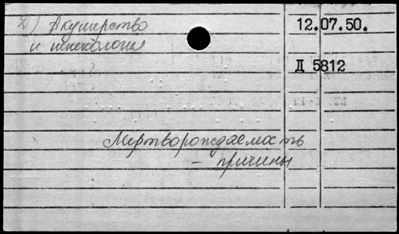 2) Акушерство
и гинекология
12.07.50.
Д 5812
Мертворождаемость
– причины